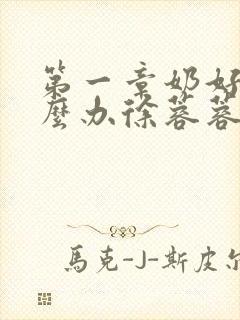 第一章奶好
麼办徐蓉蓉
馬克-J-斯皮尔